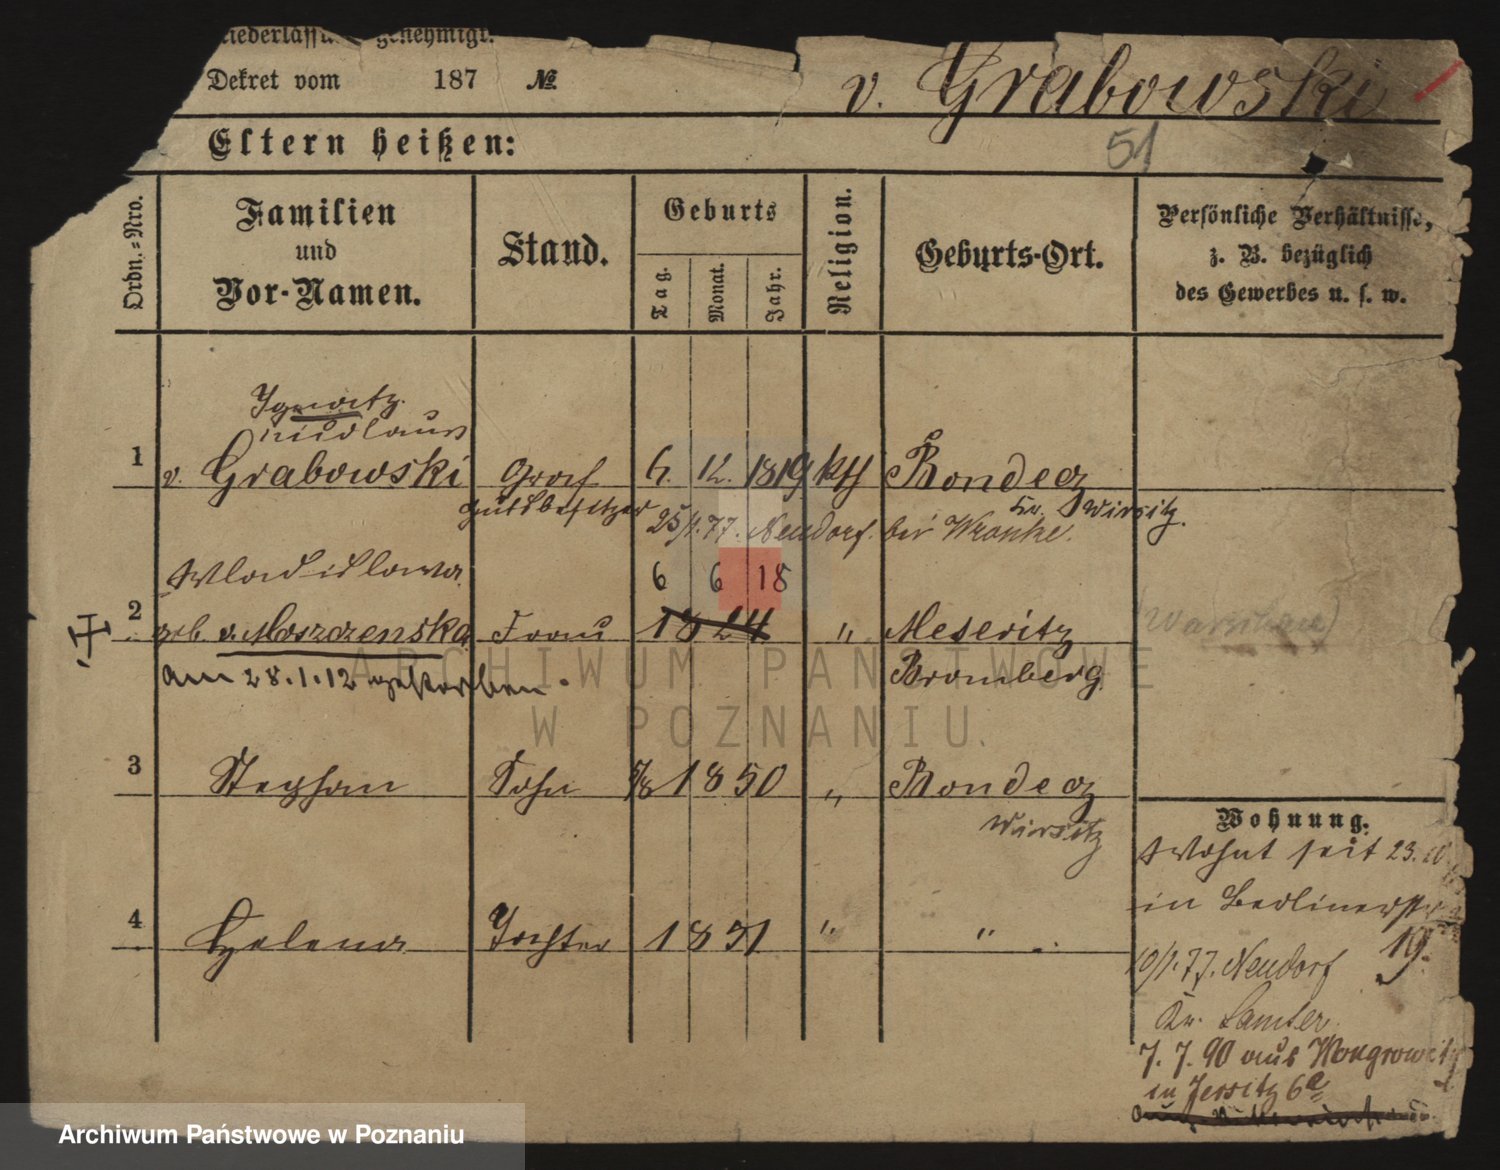 Niederlassung genehmigt.
Dekret vom 187 №
v. Grabowski
51
Eltern heißen:
Ordn.=Nro.
Familien
und
Vor-Namen.
Stand.
Geburts
Tag.
Monat.
Jahr.
Religion.
Geburts-Ort.
Persönliche Verhältnisse,
z. B. bezüglich
des Gewerbes u. s. w.
Nicolaus
1 v. Grabowski Graf 6. 12. 1819 kth Bondecz
Gutsbesitzer Kr. Wirsitz.
25/1.77. Neudorf. bei Wronke.
Wladislawa 6 6 18
2 geb. v. Moszczenska Frau 1824 " Meseritz
am 28.1.12 gestorben. Bromberg
(Warschau)
3 Stephan Sohn 5/8 1850 " Bondecz
Wirsitz
4 Helena Tochter 1851 " "
Wohnung.
Wohnt seit 23.10
in Berlinerstr
19.
10/1.77. Neudorf
Kr. Samter.
7. 7. 90 aus Wongrowitz
in Jersitz 6a
ARCHIWUM PAŃSTWOWE
W POZNANIU.
Archiwum Państwowe w Poznaniu